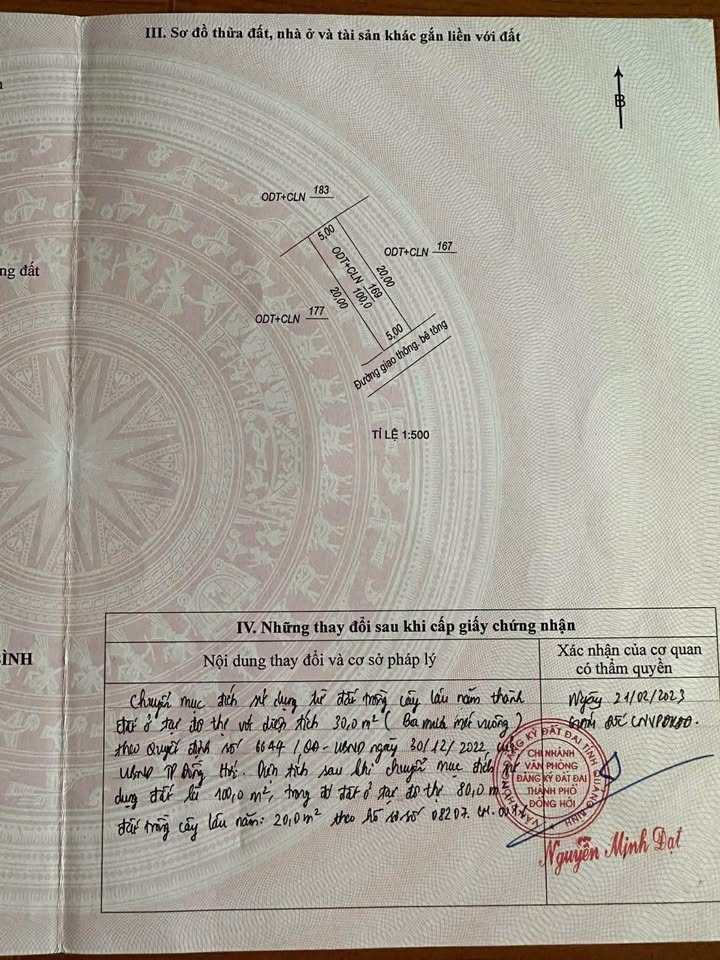 III. Sơ đồ thửa đất, nhà ở và tài sản khác gắn liền với đất
B
ODT+CLN 183
5,00
ODT+CLN 167
ng đất
ODT+CLN 169
100,0
20,00
20,00
ODT+CLN 177
5,00
Đường giao thông. bê tông
TỈ LỆ 1:500
IV. Những thay đổi sau khi cấp giấy chứng nhận
ÌNH
Nội dung thay đổi và cơ sở pháp lý
Xác nhận của cơ quan
có thẩm quyền
Chuyển mục đích sử dụng từ đất trồng cây lâu năm thành
đất ở tại đô thị với diện tích 30,0 m² (Ba mươi mét vuông)
theo Quyết định số 6644/QĐ-UBND ngày 30/12/2022 của
UBND TP Đồng Hới. Diện tích sau khi chuyển mục đích sử
dụng đất là 100,0 m², trong đó đất ở tại đô thị 80,0 m²
đất trồng cây lâu năm: 20,0 m² theo hồ sơ số 08207.
Ngày 21/02/2023
Giám đốc CNVPĐKĐĐ.
VĂN PHÒNG ĐĂNG KÝ ĐẤT ĐAI TỈNH QUẢNG BÌNH
CHI NHÁNH
VĂN PHÒNG
ĐĂNG KÝ ĐẤT ĐAI
THÀNH PHỐ
ĐỒNG HỚI
Nguyễn Minh Đạt